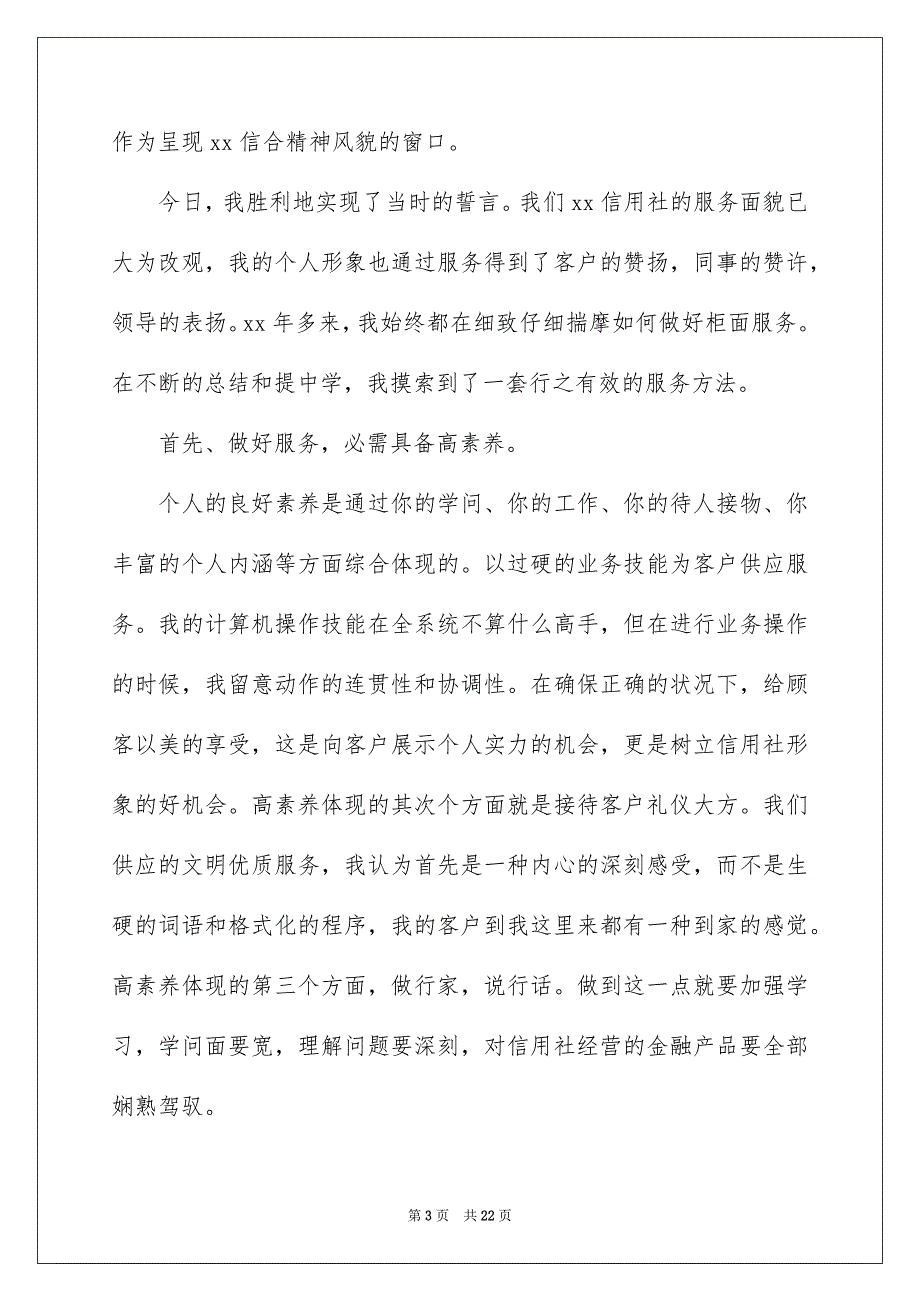 作为呈现 xx 信合精神风貌的窗口。
今日，我胜利地实现了当时的誓言。我们 xx 信用社的服务面貌已
大为改观，我的个人形象也通过服务得到了客户的赞扬，同事的赞许，
领导的表扬。xx 年多来，我始终都在细致仔细揣摩如何做好柜面服务。
在不断的总结和提中学，我摸索到了一套行之有效的服务方法。
首先、做好服务，必需具备高素养。
个人的良好素养是通过你的学问、你的工作、你的待人接物、你
丰富的个人内涵等方面综合体现的。以过硬的业务技能为客户供应服
务。我的计算机操作技能在全系统不算什么高手，但在进行业务操作
的时候，我留意动作的连贯性和协调性。在确保正确的状况下，给顾
客以美的享受，这是向客户展示个人实力的机会，更是树立信用社形
象的好机会。高素养体现的其次个方面就是接待客户礼仪大方。我们
供应的文明优质服务，我认为首先是一种内心的深刻感受，而不是生
硬的词语和格式化的程序，我的客户到我这里来都有一种到家的感觉。
高素养体现的第三个方面，做行家，说行话。做到这一点就要加强学
习，学问面要宽，理解问题要深刻，对信用社经营的金融产品要全部
娴熟驾驭。
第 3 页 共 22 页